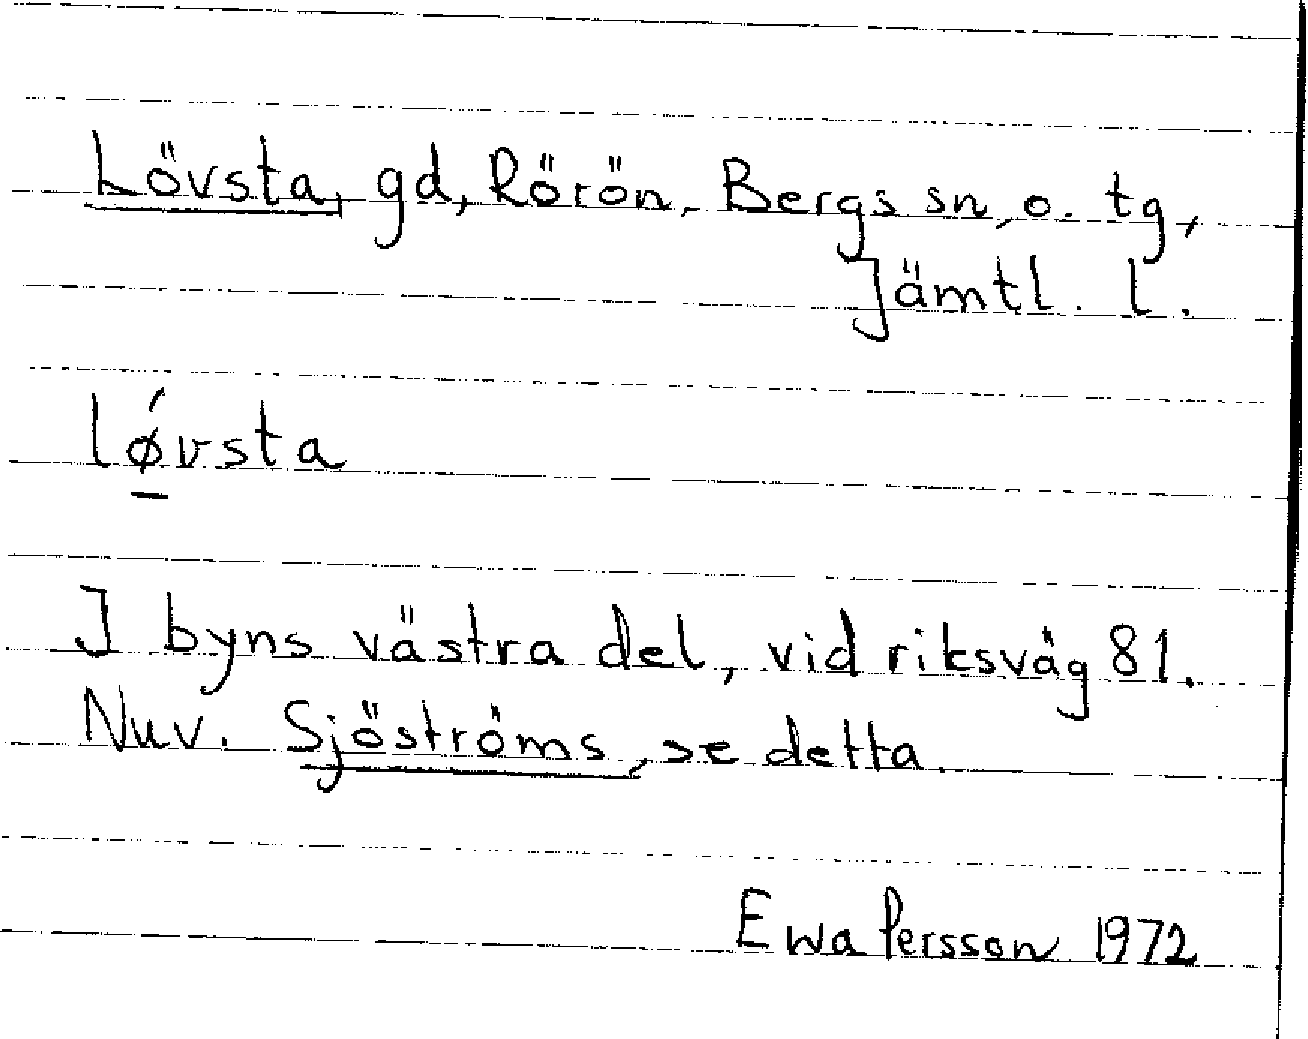 Lövsta, gd, Rörön, Bergs sn, o. tg,
Jämtl. l.
lǿvsta
I byns västra del, vid riksväg 81.
Nuv. Sjöströms, se detta.
Ewa Persson 1972